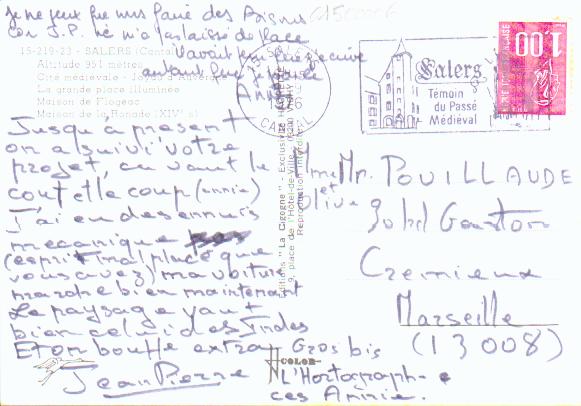 je ne peux que vous faire des Bisous
car J.P. ne m'a pas laissé de place
Annie
15-219-23 - SALERS (Cantal)
Altitude 951 mètres
Cité médiévale
La grande place illuminée
Maison de Flogeac
Maison de la Ronade (XIVe s)
Jusqu'a présent
on a suivi votre
projet, ça vaut le
cout elle coup (annie)
J'ai eu des ennuis
mecanique
(esprit mal placé que
vous avez) ma voiture
marche bien maintenant
Le paysage vaut
bien celui des Indes
Et on bouffe extra Gros bis
Jean Pierre
L'Hortographe
ces Annie.
Editions "La Cigogne" - Exclusivité
9, place de l'Hôtel-de-Ville
Reproduction interdite
COLOR
SALERS
CANTAL
Salers
Témoin
du Passé
Médiéval
1.00
Mme Mr. POUILLAUDE
et Olive
Bd Gaston
Cremieux
Marseille
(13008)